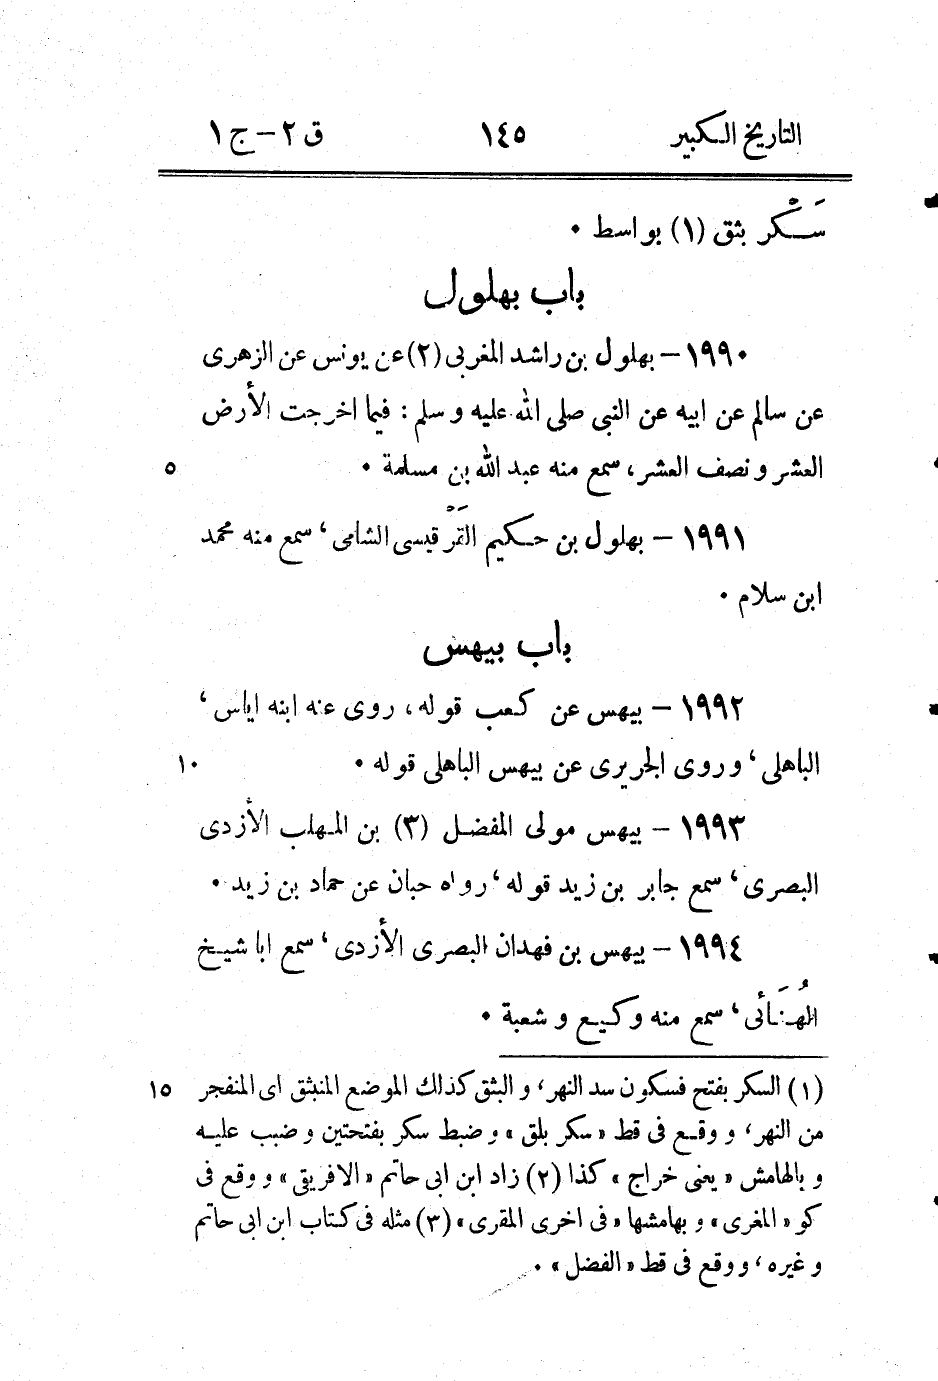 التاريخ الكبير ١٤٥ ق ٢ – ج ١
سَكْر بثق (١) بواسط •
باب بهلول
١٩٩٠ – بهلول بن راشد المغربى (٢) عن يونس عن الزهرى
عن سالم عن ابيه عن النبى صلى الله عليه وسلم : فيما اخرجت الأرض
العشر ونصف العشر، سمع منه عبد الله بن مسلمة • ٥
١٩٩١ – بهلول بن حكيم القَرْقيسى الشامى، سمع منه محمد
ابن سلام •
باب بيهس
١٩٩٢ – بيهس عن كعب قوله، روى عنه ابنه اياس،
الباهلى، وروى الجريرى عن بيهس الباهلى قوله • ١٠
١٩٩٣ – بيهس مولى المفضل (٣) بن المهلب الأزدى
البصرى، سمع جابر بن زيد قوله، رواه حبان عن حماد بن زيد •
١٩٩٤ – بيهس بن فهدان البصرى الأزدى، سمع ابا شيخ
الهُنَائى، سمع منه وكيع وشعبة •
(١) السكر بفتح فسكون سد النهر، والبثق كذلك الموضع المنبثق اى المنفجر ١٥
من النهر، ووقع فى قط «سكر بلق» وضبط سكر بفتحتين وضبب عليه
وبالهامش «يعنى خراج» كذا (٢) زاد ابن ابى حاتم «الافريقى» ووقع فى
كو «المغرى» وبهامشها «فى اخرى المقرى» (٣) مثله فى كتاب ابن ابى حاتم
وغيره، ووقع فى قط «الفضل» •